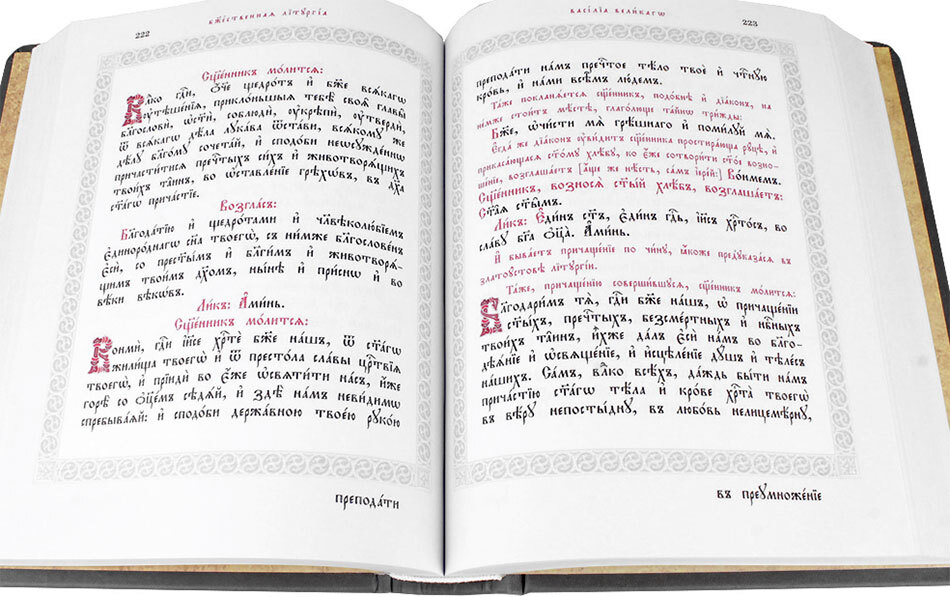 222
БЖ҃ІСТВЕННАѦ ЛІТꙊРГІ́А
Сщ҃е́нникъ мо́литсѧ:
Влⷣко гдⷭ҇и, ѻ҆́ч҃е щедро́тъ и҆ бж҃е всѧ́кагѡ
ᲂу҆тѣше́нїѧ, приклѡ́ньшыѧ тебѣ̀ своѧ̑ главы̑
блгⷭ҇овѝ, ѡ҆ст҃ѝ, соблюдѝ, ᲂу҆крѣпѝ, ᲂу҆твердѝ,
ѿ всѧ́кагѡ дѣ́ла лꙋка́ва ѿста́ви, всѧ́комꙋ же
дѣ́лꙋ бл҃го́мꙋ сочета́й, и҆ сподо́би неѡсꙋжде́ннѡ
причасти́тисѧ пречⷭ҇тыхъ си́хъ и҆ животворѧ́щихъ
твои́хъ та̑инъ, во ѡ҆ставле́нїе грѣхѡ́въ, въ дх҃а
ст҃а́гѡ прича́стїе.
Возгла́съ:
Блгⷣа́тїю и҆ щедро́тами и҆ чл҃вѣколю́бїемъ
є҆диноро́днагѡ сн҃а твоегѡ̀, съ ни́мже блгⷭ҇ове́нъ
є҆сѝ, со прест҃ы́мъ и҆ бл҃ги́мъ и҆ животворѧ́-
щимъ твои́мъ дх҃омъ, ны́нѣ и҆ при́снѡ и҆ во
вѣ́ки вѣкѡ́въ.
Ли́къ: А҆ми́нь.
Сщ҃е́нникъ мо́литсѧ:
Вонмѝ, гдⷭ҇и і҆и҃се хрⷭ҇тѐ бж҃е на́шъ, ѿ ст҃а́гѡ
жили́ща твоегѡ̀ и҆ ѿ престо́ла сла́вы црⷭ҇твїѧ
твоегѡ̀, и҆ прїидѝ во є҆́же ѡ҆свѧти́ти на́съ, и҆́же
горѣ̀ со ѻ҆ц҃е́мъ сѣдѧ́й, и҆ здѣ̀ на́мъ неви́димѡ
спребыва́ѧй: и҆ сподо́би держа́вною твое́ю рꙋко́ю
препода́ти
ВАСІ́ЛІА ВЕЛИ́КАГѠ
223
препода́ти на́мъ пречⷭ҇тое тѣ́ло твоѐ и҆ чтⷭ҇нꙋ́ю
кро́вь, и҆ на́ми всѣ̑мъ лю́демъ.
Та́же покланѧ́етсѧ сщ҃е́нникъ, подо́бнѣ и҆ дїа́конъ, на
не́мже стои́тъ мѣ́стѣ, глаго́люще та́йнѡ три́жды:
Бж҃е, ѡ҆чи́сти мѧ̀ грѣ́шнаго и҆ поми́лꙋй мѧ̀.
Е҆гда́ же дїа́конъ ᲂу҆ви́дитъ сщ҃е́нника простира́юща рꙋ́цѣ, и҆
прикаса́ющасѧ ст҃о́мꙋ хлѣ́бꙋ, ко є҆́же сотвори́ти ст҃о́е возно-
ше́нїе, возглаша́етъ [а҆́ще же нѣ́сть, са́мъ і҆ере́й:] Во́нмемъ.
Сщ҃е́нникъ, вознося̀ ст҃ы́й хлѣ́бъ, возглаша́етъ:
Ст҃а̑ѧ ст҃ы̑мъ.
Ли́къ: Е҆ди́нъ ст҃ъ, є҆ди́нъ гдⷭ҇ь, і҆и҃съ хрⷭ҇то́съ, во
сла́вꙋ бг҃а ѻ҆ц҃а̀. А҆ми́нь.
И҆ быва́етъ причаще́нїе по чи́нꙋ, ꙗ҆́коже предꙋказа́сѧ въ
златоꙋ́стовѣ лїтꙋргі́и.
Та́же, причаще́нїю соверши́вшꙋсѧ, сщ҃е́нникъ мо́литсѧ:
Благодари́мъ тѧ̀, гдⷭ҇и бж҃е на́шъ, ѡ҆ причаще́нїи
ст҃ы́хъ, пречⷭ҇тыхъ, безсме́ртныхъ и҆ нбⷭ҇ныхъ
твои́хъ та̑инъ, ꙗ҆̀же да́лъ є҆сѝ на́мъ во благо-
дѣѧ́нїе и҆ ѡ҆свѧще́нїе, и҆ и҆сцѣле́нїе дꙋ́шъ и҆ тѣле́съ
на́шихъ. Са́мъ, влⷣко всѣ́хъ, да́ждь бы́ти на́мъ
прича́стїю ст҃а́гѡ тѣ́ла и҆ кро́ве хрⷭ҇та̀ твоегѡ̀
въ вѣ́рꙋ непосты́днꙋ, въ любо́вь нелицемѣ́рнꙋ,
въ преꙋмноже́нїе